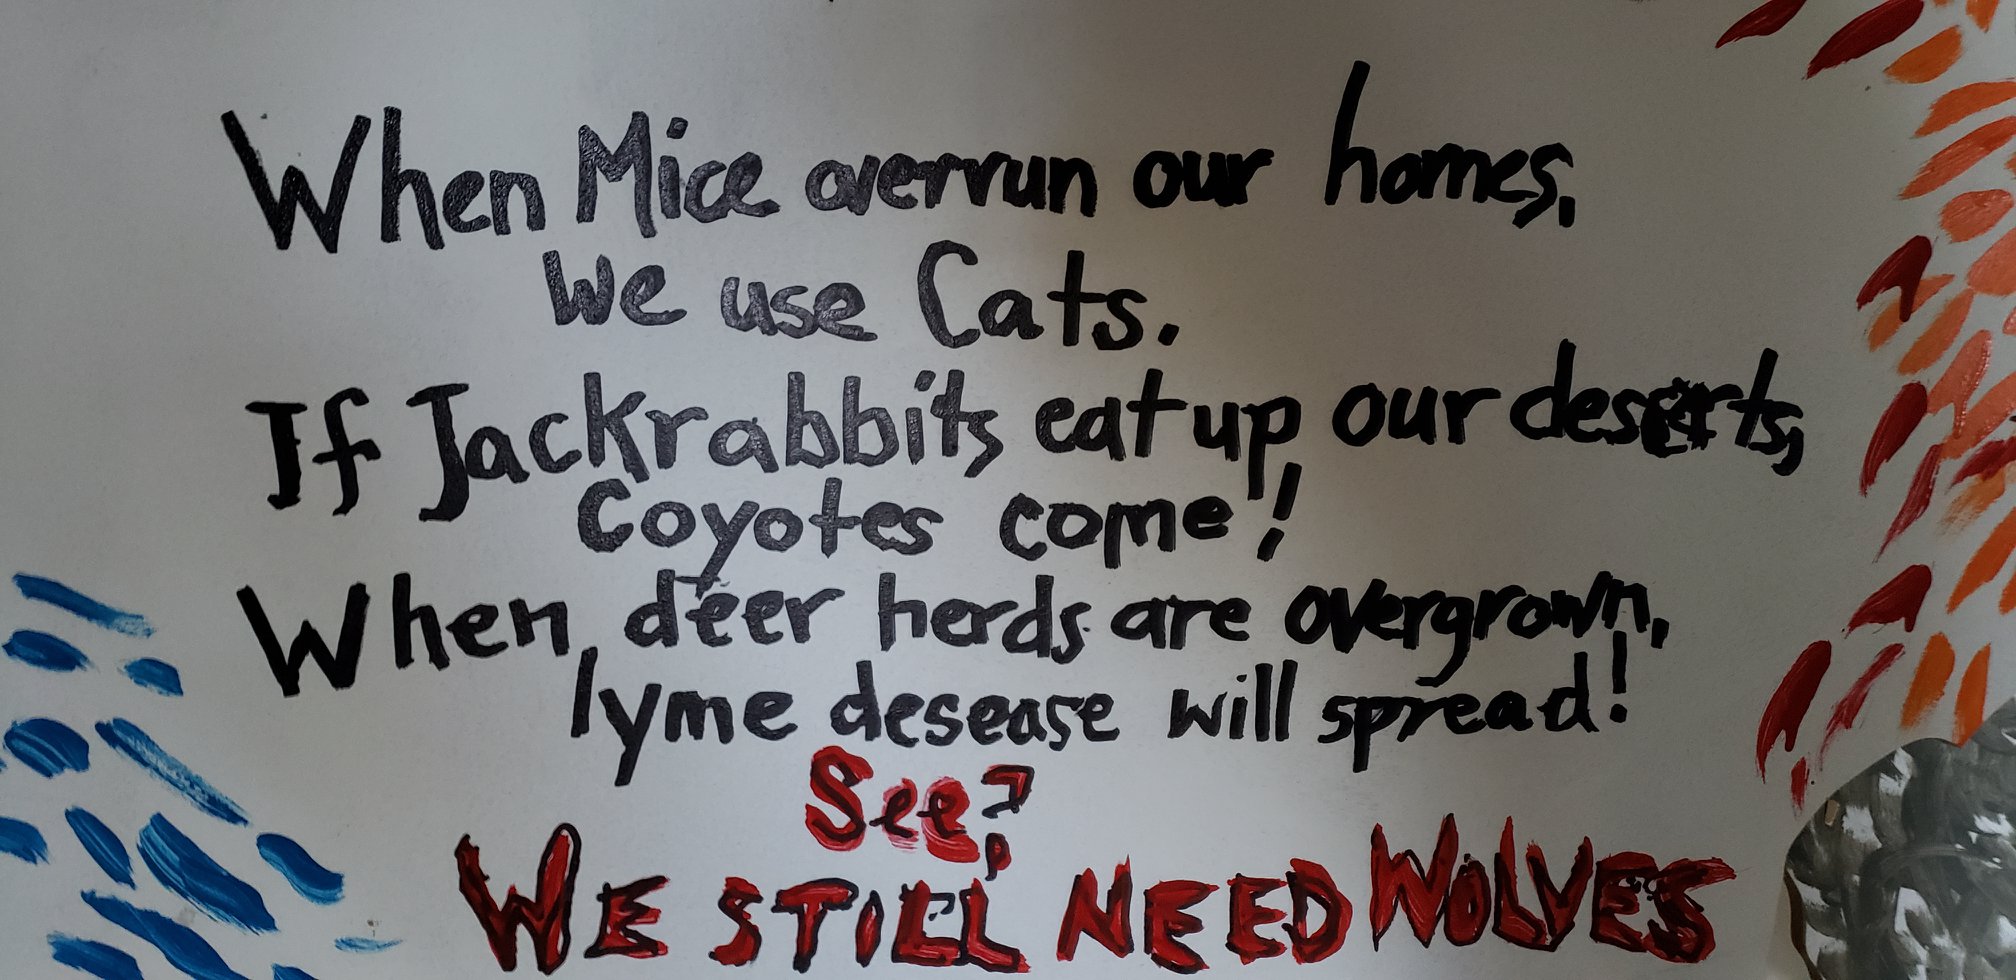 When Mice overrun our homes,
We use Cats.
If Jackrabbits eat up our deserts,
Coyotes come!
When deer herds are overgrown,
lyme desease will spread!
See?
WE STILL NEED WOLVES